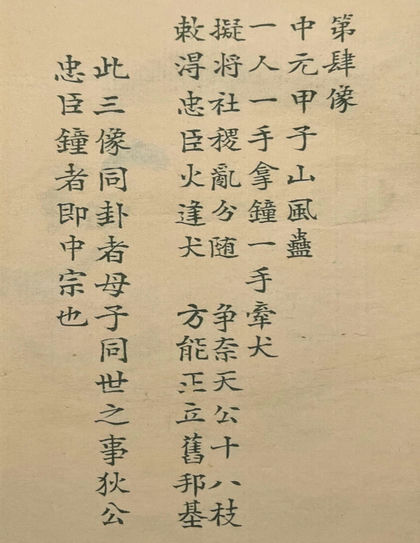 第肆像
中元甲子山風蠱
一人一手拿鐘一手牽犬
擬將社稷亂分随　争奈天公十八枝
敕淂忠臣火逢犬　方能㱏立舊邦基
此三像同卦者母子同世之事狄公
忠臣鐘者即中宗也